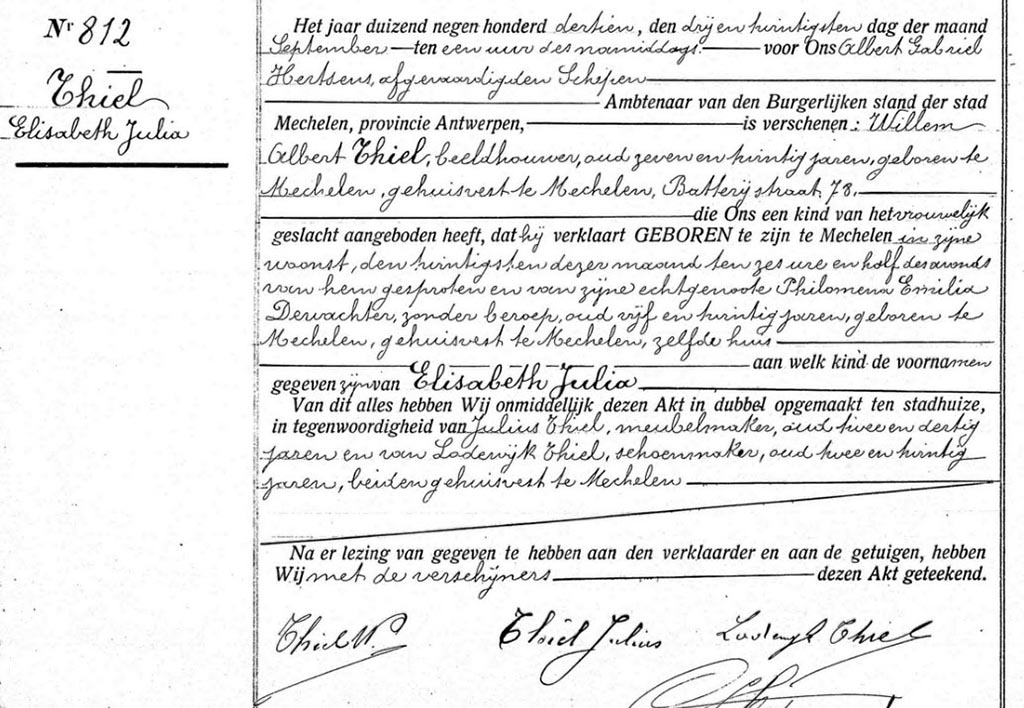 Nr 812
Thiel
Elisabeth Julia
Het jaar duizend negen honderd dertien, den drij en twintigsten dag der maand
September — ten een uur des namiddags. — voor Ons Albert Gabriel
Hertsens, afgevaardigden Schepen —
— Ambtenaar van den Burgerlijken stand der stad
Mechelen, provincie Antwerpen, — is verschenen : Willem
Albert Thiel, beeldhouwer, oud zeven en twintig jaren, geboren te
Mechelen, gehuisvest te Mechelen, Batterijstraat, 78. —
— die Ons een kind van het vrouwelijk
geslacht aangeboden heeft, dat hij verklaart GEBOREN te zijn te Mechelen in zijne
woonst, den twintigsten dezer maand ten zes ure en half des avonds
van hem gesproten en van zijne echtgenoote Philomena Emilia
Derwachter, zonder beroep, oud vijf en twintig jaren, geboren te
Mechelen, gehuisvest te Mechelen, zelfde huis —
— aan welk kind de voornamen
gegeven zijn van Elisabeth Julia —
Van dit alles hebben Wij onmiddelijk dezen Akt in dubbel opgemaakt ten stadhuize,
in tegenwoordigheid van Julius Thiel, meubelmaker, oud twee en dertig
jaren en van Lodewijk Thiel, schoenmaker, oud twee en twintig
jaren, beiden gehuisvest te Mechelen —
Na er lezing van gegeven te hebben aan den verklaarder en aan de getuigen, hebben
Wij met de verschijners — dezen Akt geteekend.
Thiel W. Thiel Julius Lodewyk Thiel